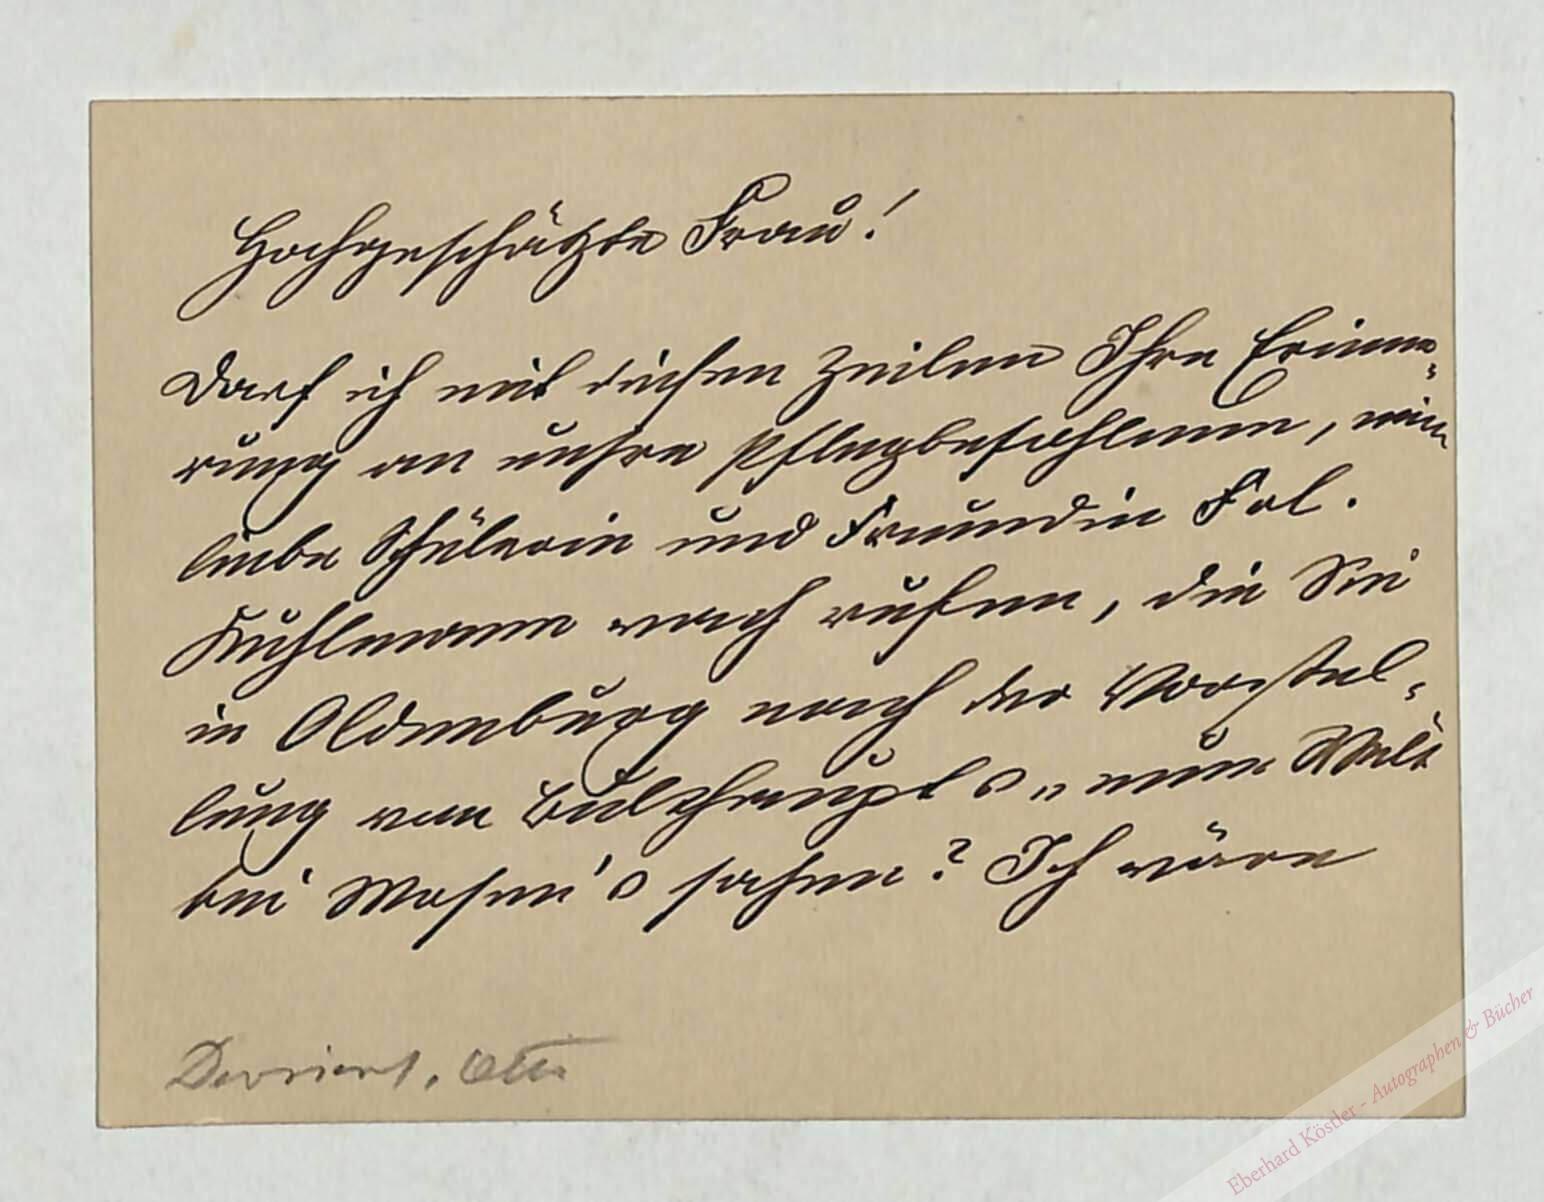 Hochgeschätzte Frau!
Darf ich mit diesen Zeilen Ihre Erinne-
rung an unsre Pflegbefohlenen, meine
liebe Schülerin und Freundin Frl.
Kuhlmann wach rufen, die Sie
in Oldenburg nach der Vorstel-
lung von Bulthaupt's „neuer Welt
bei Mosen's sahen? Ich wäre
Devrient, Otto
Eberhard Köstler - Autographen & Bücher